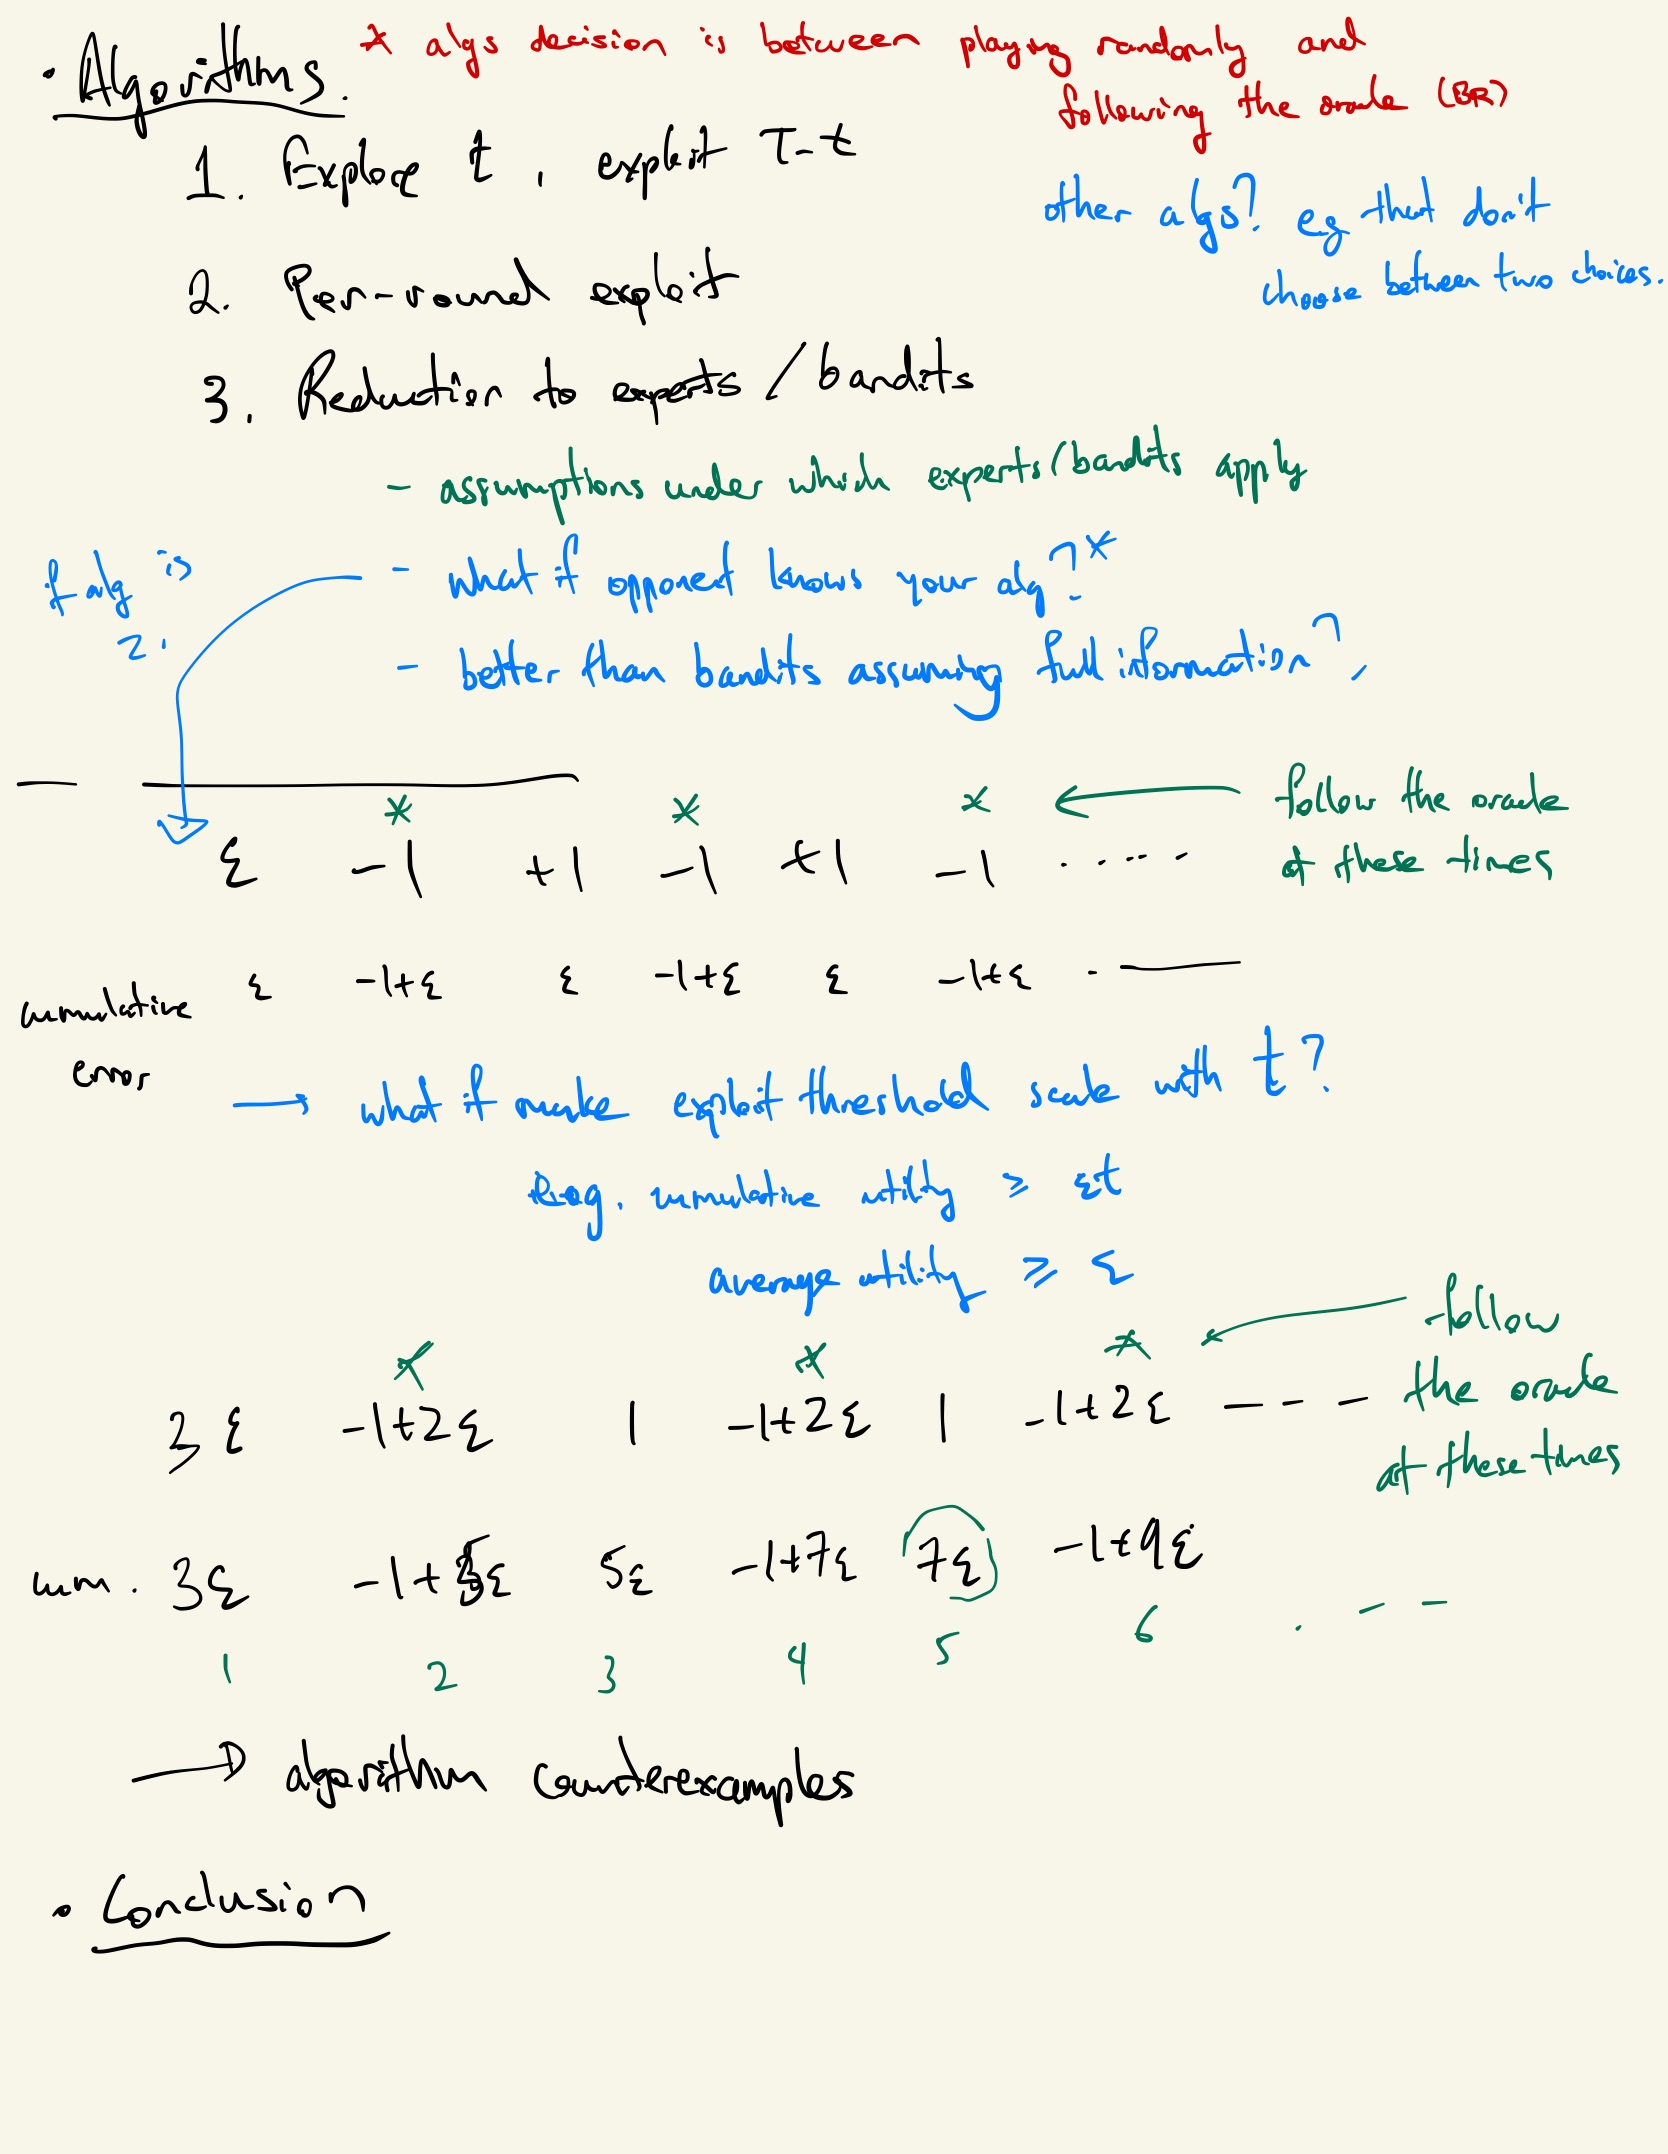 • Algorithms.
* algs decision is between playing randomly and
following the oracle (BR)
1. Explore t , exploit T-t
other algs? eg that don't
choose between two choices.
2. Per-round exploit
3. Reduction to experts / bandits
- assumptions under which experts/bandits apply
if alg is
2.
- what if opponent knows your alg?*
- better than bandits assuming full information?
* * * ← follow the oracle
at these times
ε -1 +1 -1 +1 -1 .....
cumulative
error
ε -1+ε ε -1+ε ε -1+ε . —
→ what if make exploit threshold scale with t?
e.g. cumulative utility ≥ εt
average utility ≥ ε
* * * ← follow
the oracle
at these times
3ε -1+2ε 1 -1+2ε 1 -1+2ε - - -
cum. 3ε -1+5ε 5ε -1+7ε 7ε -1+9ε . - -
1 2 3 4 5 6
→ algorithm counterexamples
• Conclusion